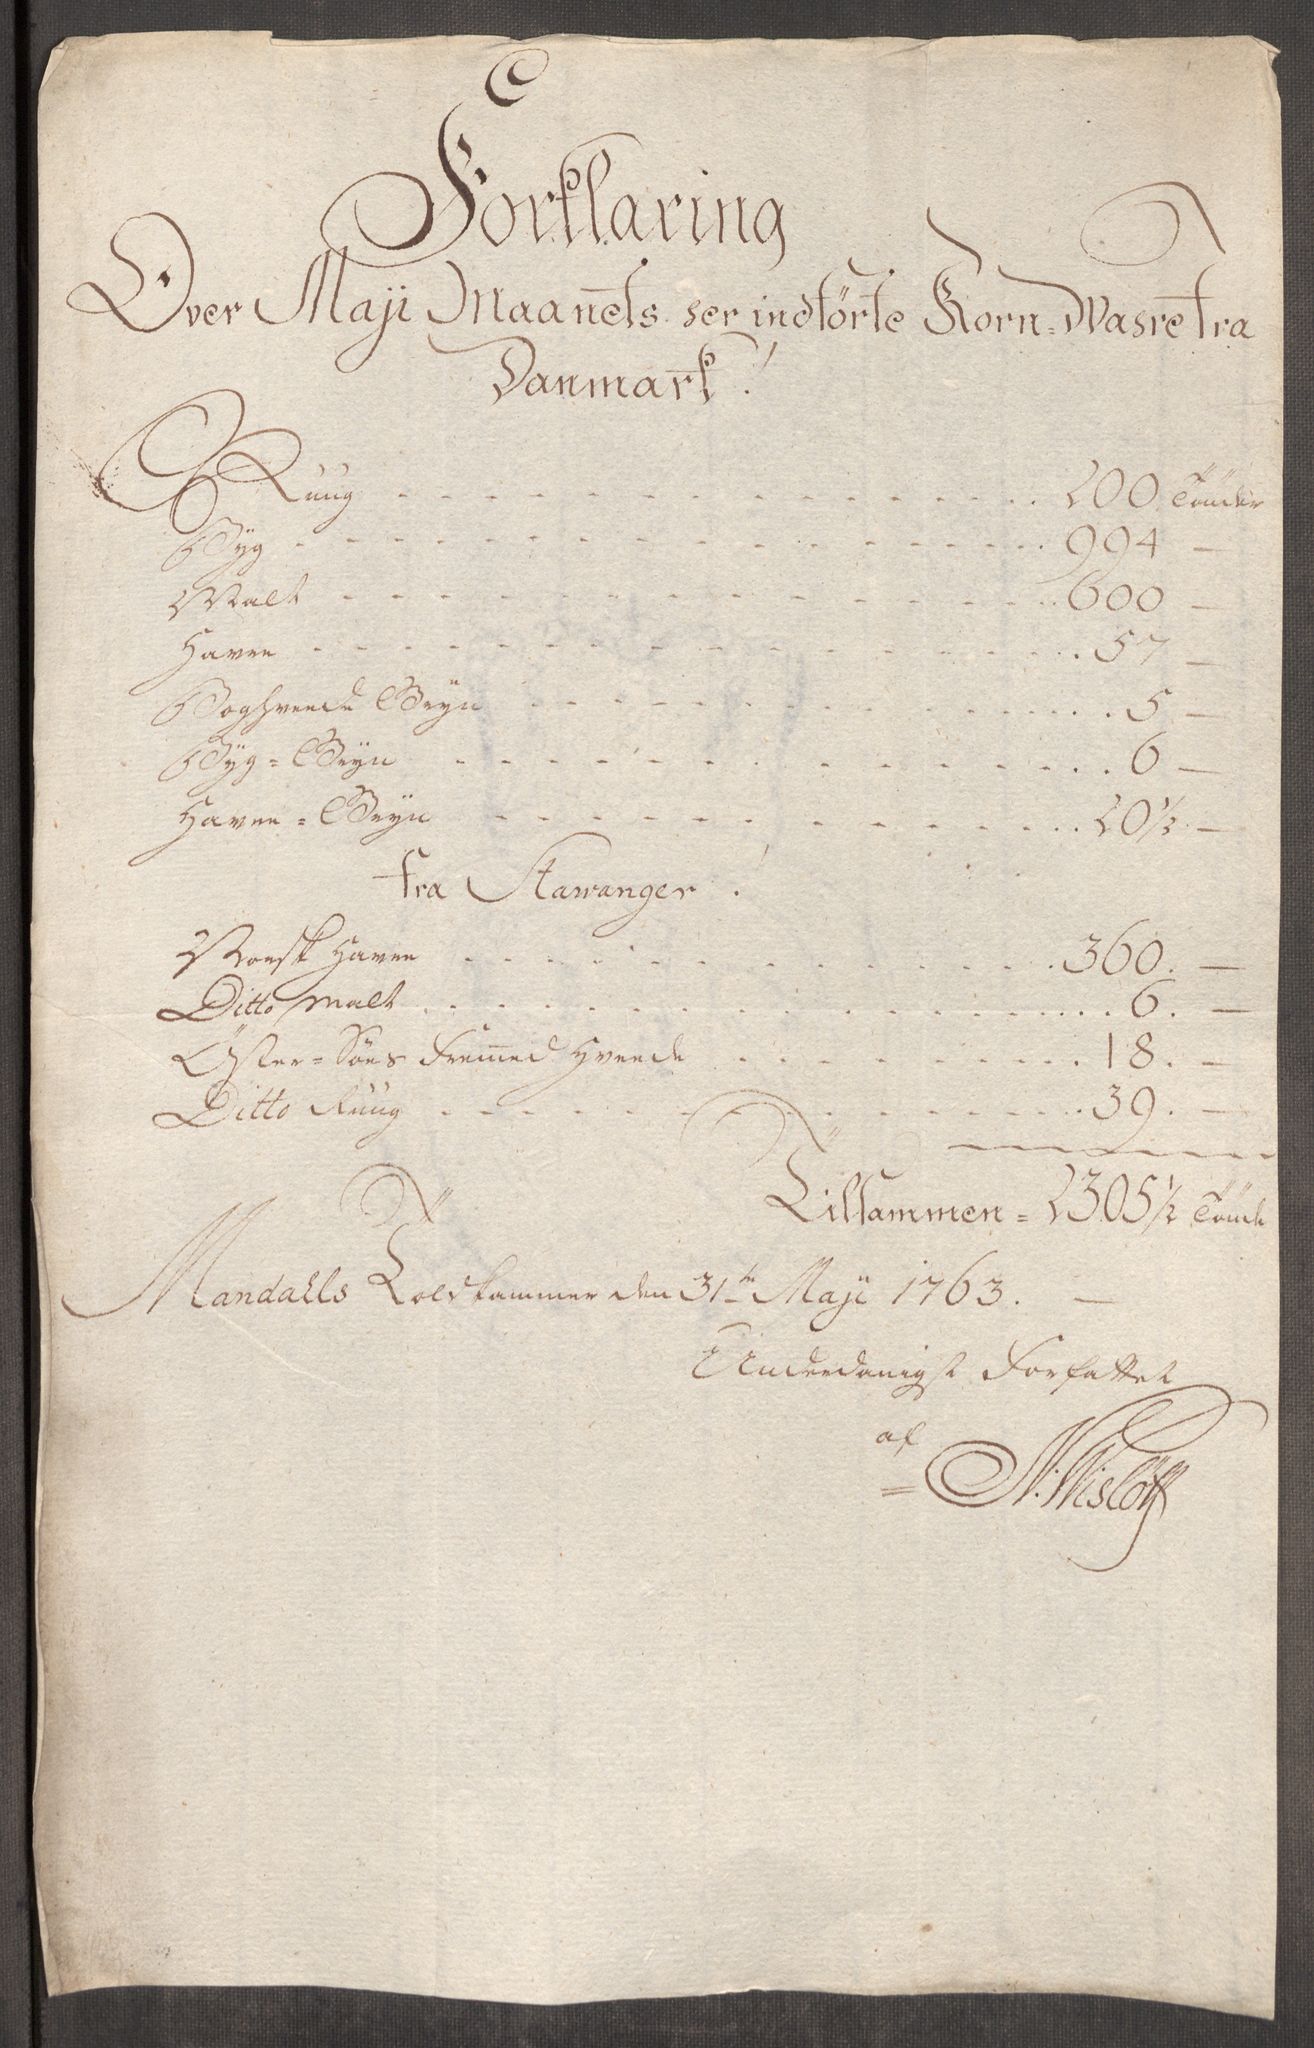 Forklaring
Over Maji Maanets her indförte Korn-Wahre fra
Danmark!
Ruug 200 Tönder
Byg 994 —
Malt 600 —
Havre 57 —
Boghveede Gryn 5 —
Byg = Gryn 6 —
Havre = Gryn 20 1/2 —
fra Stavanger!
Norsk Havre 360. —
Ditto Malt 6. —
Öster = Söes Fremed Hveede 18. —
Ditto Ruug 39. —
Tilsammen = 2305 1/2 Tönde
Mandahls Toldkammer den 31te Maji 1763. —
Underdanigst Forfattet
af
= N: Wislöff